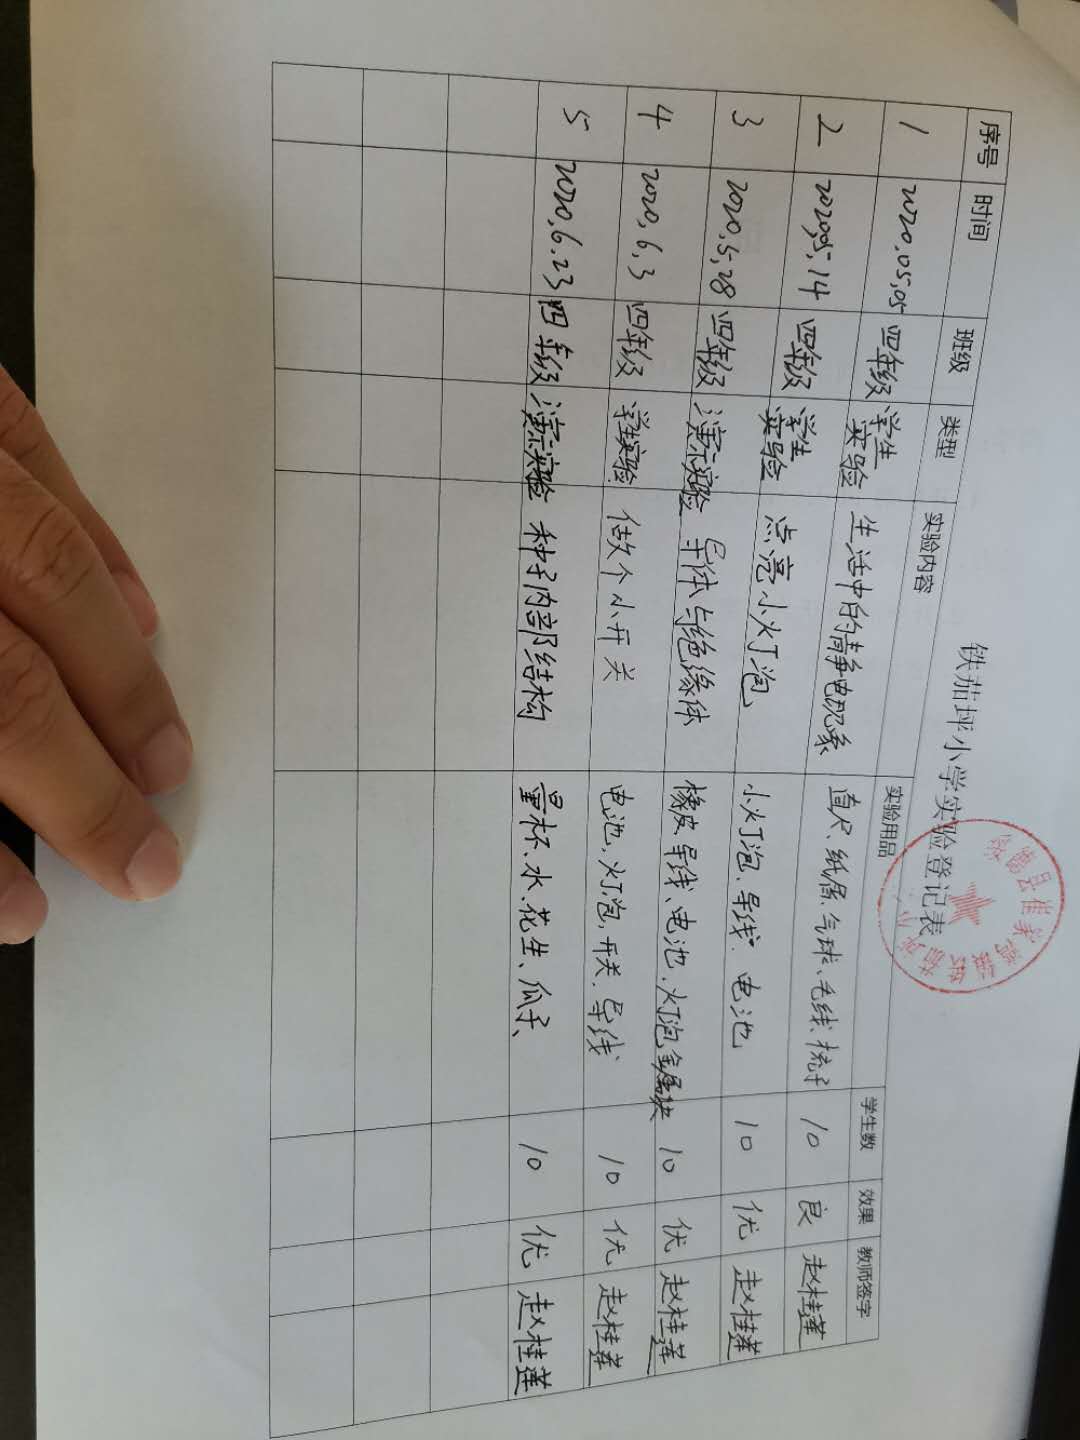 铁茄坪小学实验登记表
序号 时间 班级 类型 实验内容 实验用品 学生数 效果 教师签字
1 2020.05.05 四年级 学生实验 生活中的静电现象 直尺、纸屑、气球、毛线、梳子 10 良 赵桂莲
2 2020.05.14 四年级 学生实验 点亮小灯泡 小灯泡、导线、电池 10 优 赵桂莲
3 2020.5.28 四年级 演示实验 导体与绝缘体 橡皮、导线、电池、灯泡、金属块 10 优 赵桂莲
4 2020.6.3 四年级 学生实验 做个小开关 电池、灯泡、开关、导线 10 优 赵桂莲
5 2020.6.23 四年级 演示实验 种子内部结构 量杯、水、花生、瓜子、 10 优 赵桂莲